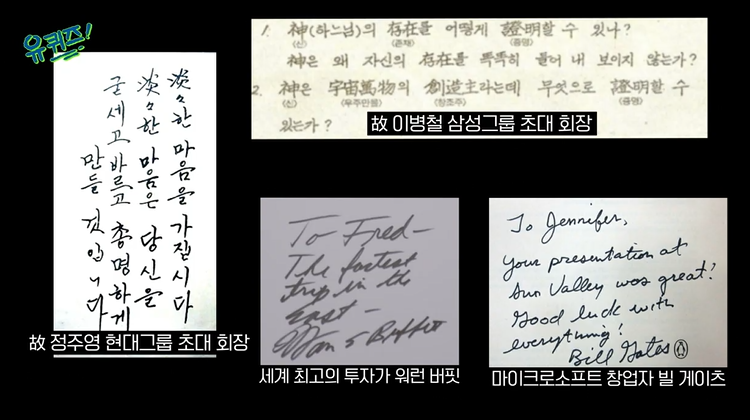 유퀴즈!
淡々한 마음을 가집시다
淡々한 마음은 당신을
굳세고 바르고 총명하게
만들 것입니다
故 정주영 현대그룹 초대 회장
1. 神(하느님)의 存在를 어떻게 證明할 수 있나?
(신) (존재) (증명)
神은 왜 자신의 存在를 똑똑히 들어 내 보이지 않는가?
2. 神은 宇宙萬物의 創造主라는데 무엇으로 證明할 수
(신) (우주만물) (창조주) (증명)
있는가?
故 이병철 삼성그룹 초대 회장
To Fred—
The fastest
trip in the
east —
세계 최고의 투자가 워런 버핏
To Jennifer,
Your presentation at
Sun Valley was great!
Good luck with
everything!
Bill Gates
마이크로소프트 창업자 빌 게이츠